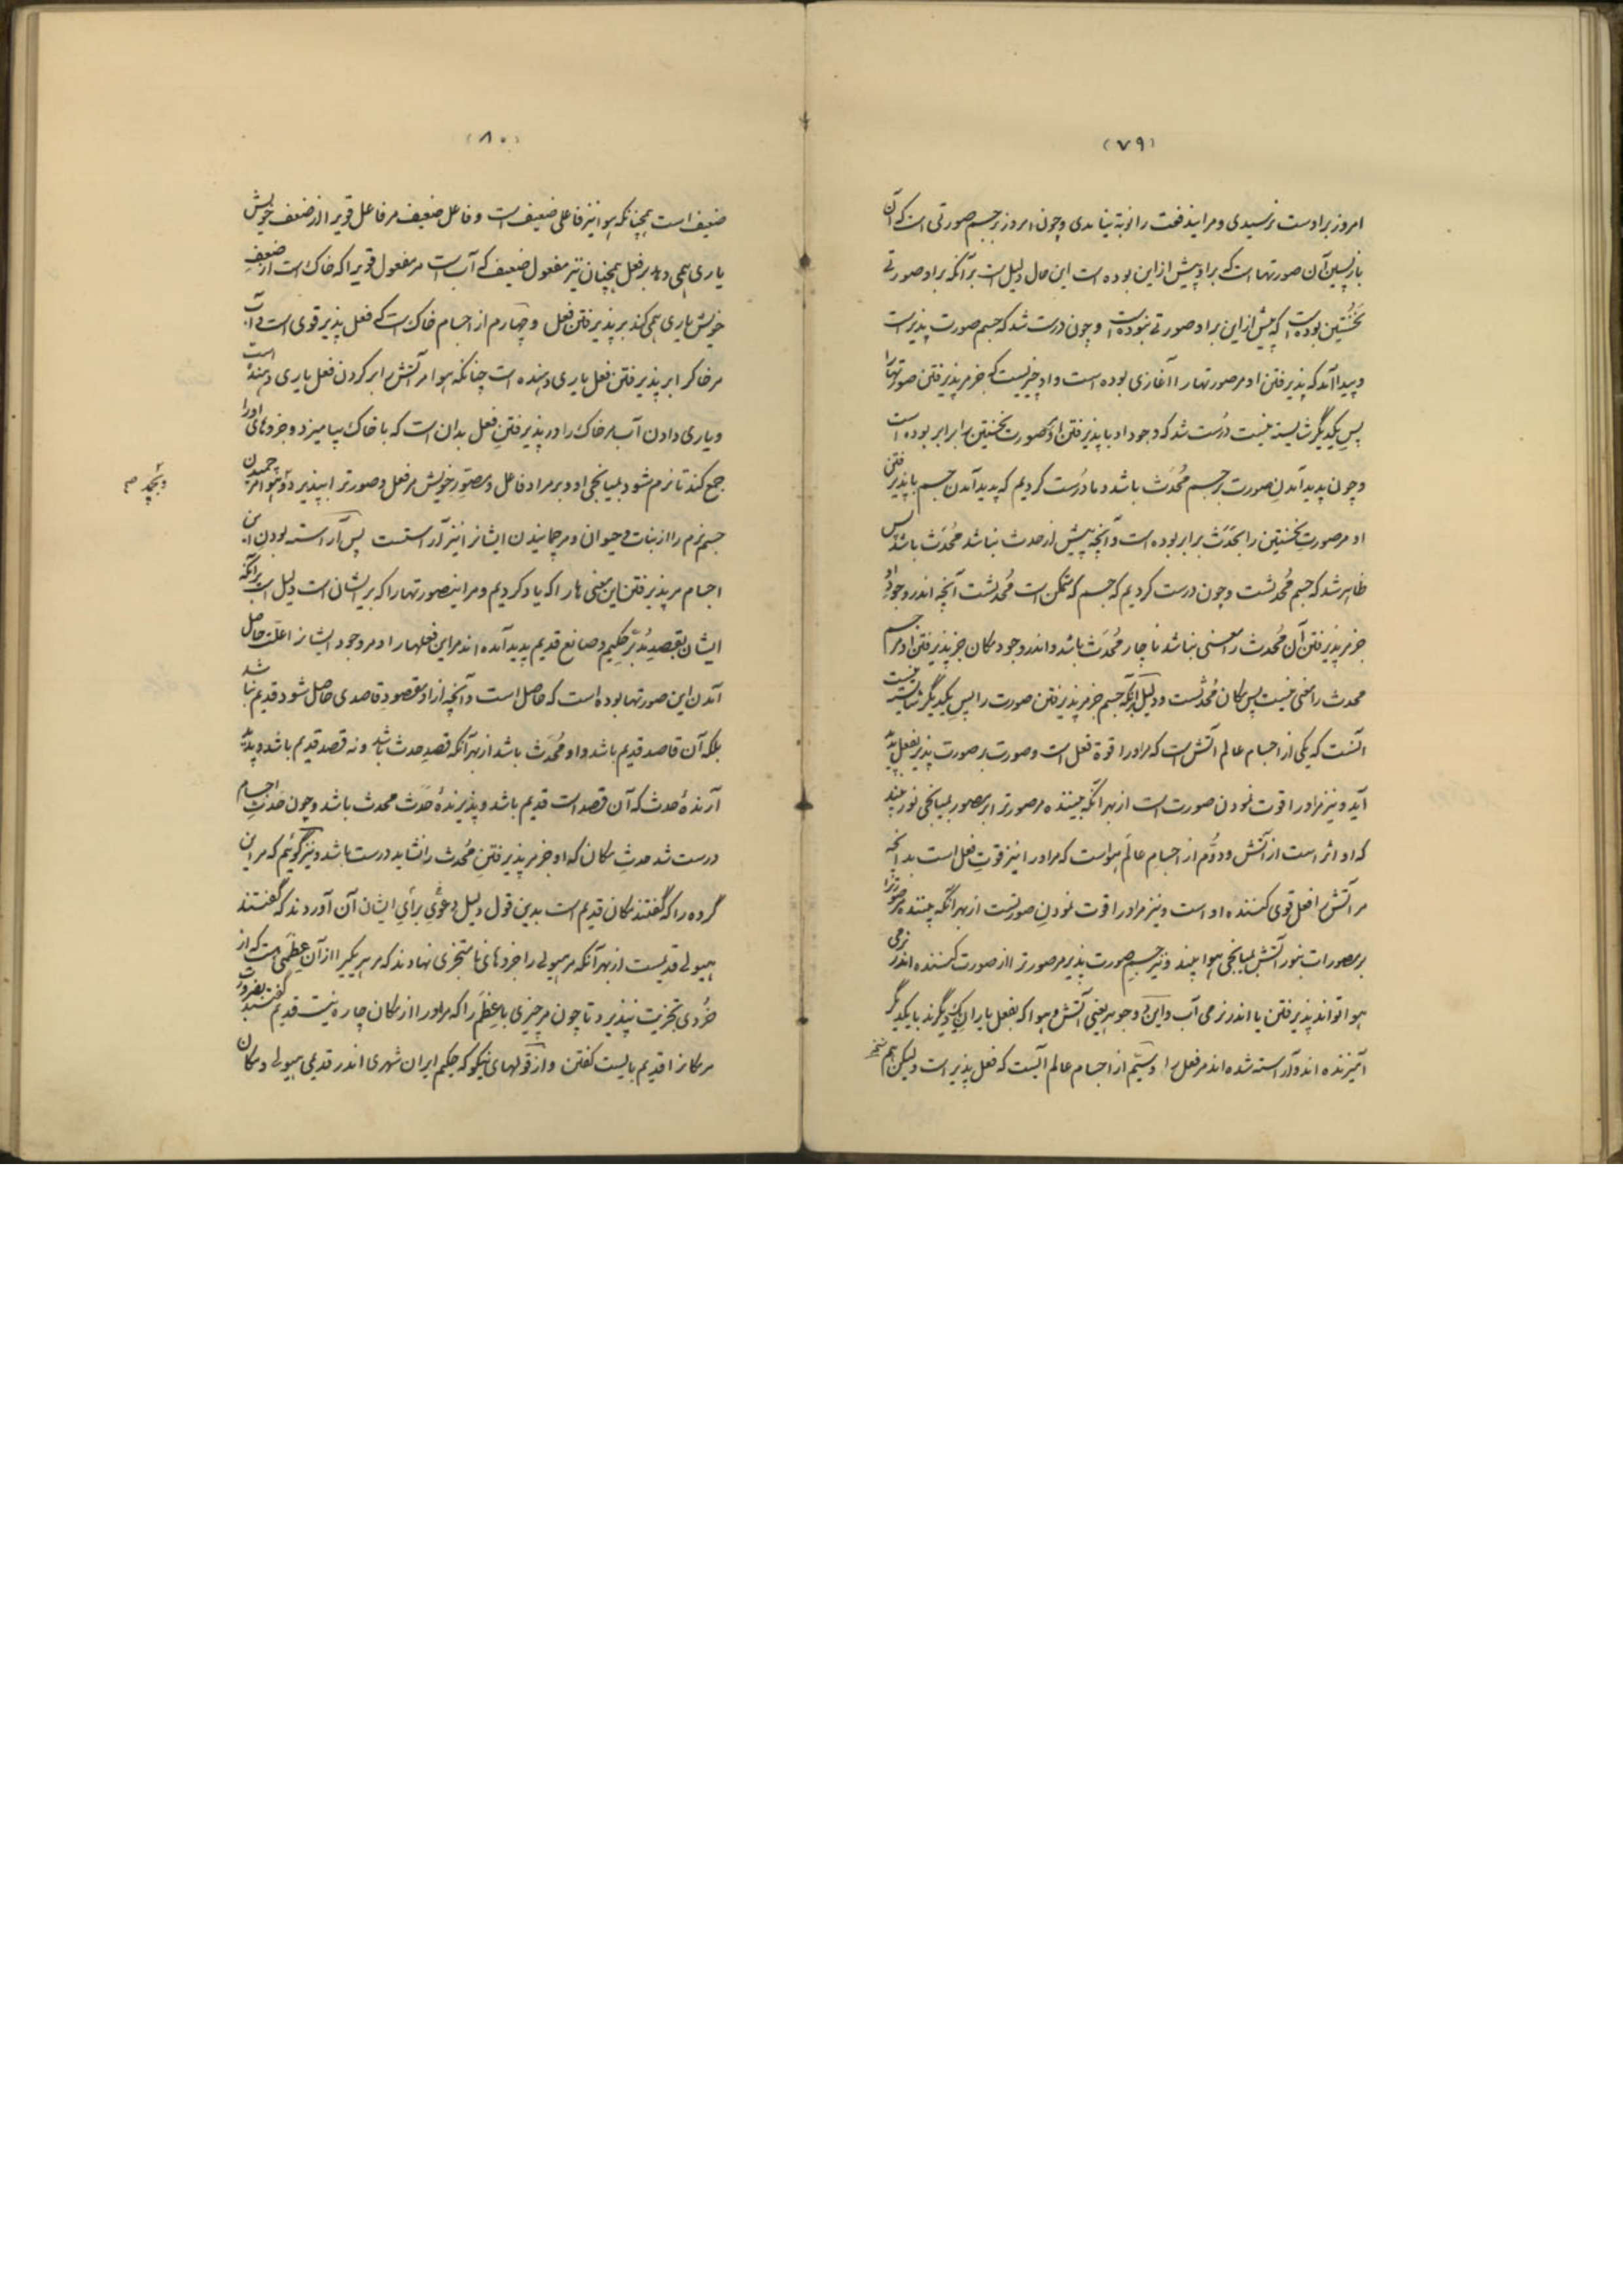 (۷۹)
امروز بر اوست نرسیدی و مر این دفعت را نوبة نیامدی و چون امروز بر جسم صورتی است که آن
بازپسین آن صورتهاست که بر او پیش ازاین بوده است این حال دلیل است بر آنکه بر او صورتی
نخستین بوده است که پیش ازاین بر او صورتی نبوده است و چون درست شد که جسم صورت پذیرست
و پیدا آمد که پذیرفتن او مر صورتها را آغازی بوده است و او چیزیست که جز مر پذیرفتن صورتها را
پس یکدیگر شایسته نیست درست شد که وجود او با پذیرفتن او صورت نخستین را برابر بوده است
و چون پدید آمدن صورت بر جسم مُحدَث باشد و ما درست کردیم که پدید آمدن جسم با پذیرفتن
او مر صورت نخستین را بحَدَث برابر بوده است و آنچه پیش از حدث نباشد مُحدَث باشد پس
ظاهر شد که جسم مُحدَثست و چون درست کردیم که جسم که متمکن است مُحدَثست آنچه اندر وجود او
جز مر پذیرفتن آن مُحدث را معنی نباشد ناچار مُحدَث باشد و اندر وجود مکان جز پذیرفتن او مر جسم
محدث را معنی نیست پس مکان مُحدَثست و دلیل بر آنکه جسم جز مر پذیرفتن صورت را پس یکدیگر شایسته نیست
آنست که یکی از اجسام عالم آتش است که مر او را قوة فعل است و صورت بر صورت پذیر بفعل پدید
آید و نیز مر او را قوت نمودن صورت است از بهر آنکه بیننده مر صورت را بر مصور بمیانجی نور بیند
که او اثر است از آتش و دوُم از اجسام عالم هواست که مر او را نیز قوتِ فعل است بدانچه
مر آتش را فعل قوی کننده او است و نیز مر او را قوت نمودن صورتست از بهر آنکه بیننده مر صورت را
بر مصورات بنور آتش بمیانجی هوا بیند و نیز جسم صورت پذیر مر صورت را از صورت کننده اندر نرمی
هوا تواند پذیرفتن یا اندر نرمی آب و این دو جوهر یعنی آتش و هوا که بفعل یاران یکدیگرند با یکدیگر
آمیزنده اند و آراسته شده اند مر فعل را و سیّم از اجسام عالم آبست که فعل پذیر است ولیکن هم
(۸۰)
ضعیف است همچنانکه هوا نیز فاعلی ضعیف است و فاعل ضعیف مر فاعل قوی را از ضعف خویش
یاری همی دهد بر فعل همچنان نیز مفعول ضعیف که آب است مر مفعول قوی را که خاک است از ضعفِ
خویش یاری همی کند بر پذیرفتن فعل و چهارم از اجسام خاک است که فعل پذیر قوی است و آب
مر خاک را بر پذیرفتن فعل یاری دهنده است چنانکه هوا مر آتش را بر کردن فعل یاری دهنده است
و یاری دادن آب مر خاک را در پذیرفتن فعل بدان است که با خاک بیامیزد و جزوهای او را
جمع کند تا نرم شود بمیانجی او و بر مراد فاعل و مصوّر خویش مر فعل و صورت را بپذیرد و هوا مر
جسم نرم را از نبات و حیوان و مر چمانیدن ایشان را نیز آراستست پس آراسته بودن این
اجسام مر پذیرفتن این معنی ها را که یاد کردیم و مر این صورتها را که بر ایشان است دلیل است بر آنکه
ایشان بقصد مدبّر حکیم و صانع قدیم پدید آمده اند مر این فعلها را و مر وجود ایشان را علّت حاصل
آمدن این صورتها بوده است که حاصل است و آنچه از او مقصودِ قاصدی حاصل شود قدیم نباشد
بلکه آن قاصد قدیم باشد و او مُحدَث باشد از بهر آنکه قصدِ حدث باشد و نه قصد قدیم باشد و پدید
آرندهٔ حدث که آن قصد است قدیم باشد و پذیرندهٔ حَدَث محدث باشد و چون حَدَثِ اجسام
درست شد حدثِ مکان که او جز مر پذیرفتنِ مُحدث را نشاید درست باشد و نیز گوئیم که مر این
گروه را که گفتند مکان قدیم است بدین قول دلیل و دعوی برأیِ ایشان آن آوردند که گفتند
هیولی قدیمست از بهر آنکه مر هیولی را جزوهای نامتجزی نهادند که مر هر یکی را از آن عِظَمی است که از
خُردی تجزیت نپذیرد تا چون مر چیزی با عِظَم را که مر او را از مکان چاره نیست قدیم گفتند بضرورت
مر مکان را قدیم بایست گفتن و از قولهای نیکو که حکیم ایران شهری اندر قدیمی هیولی و مکان